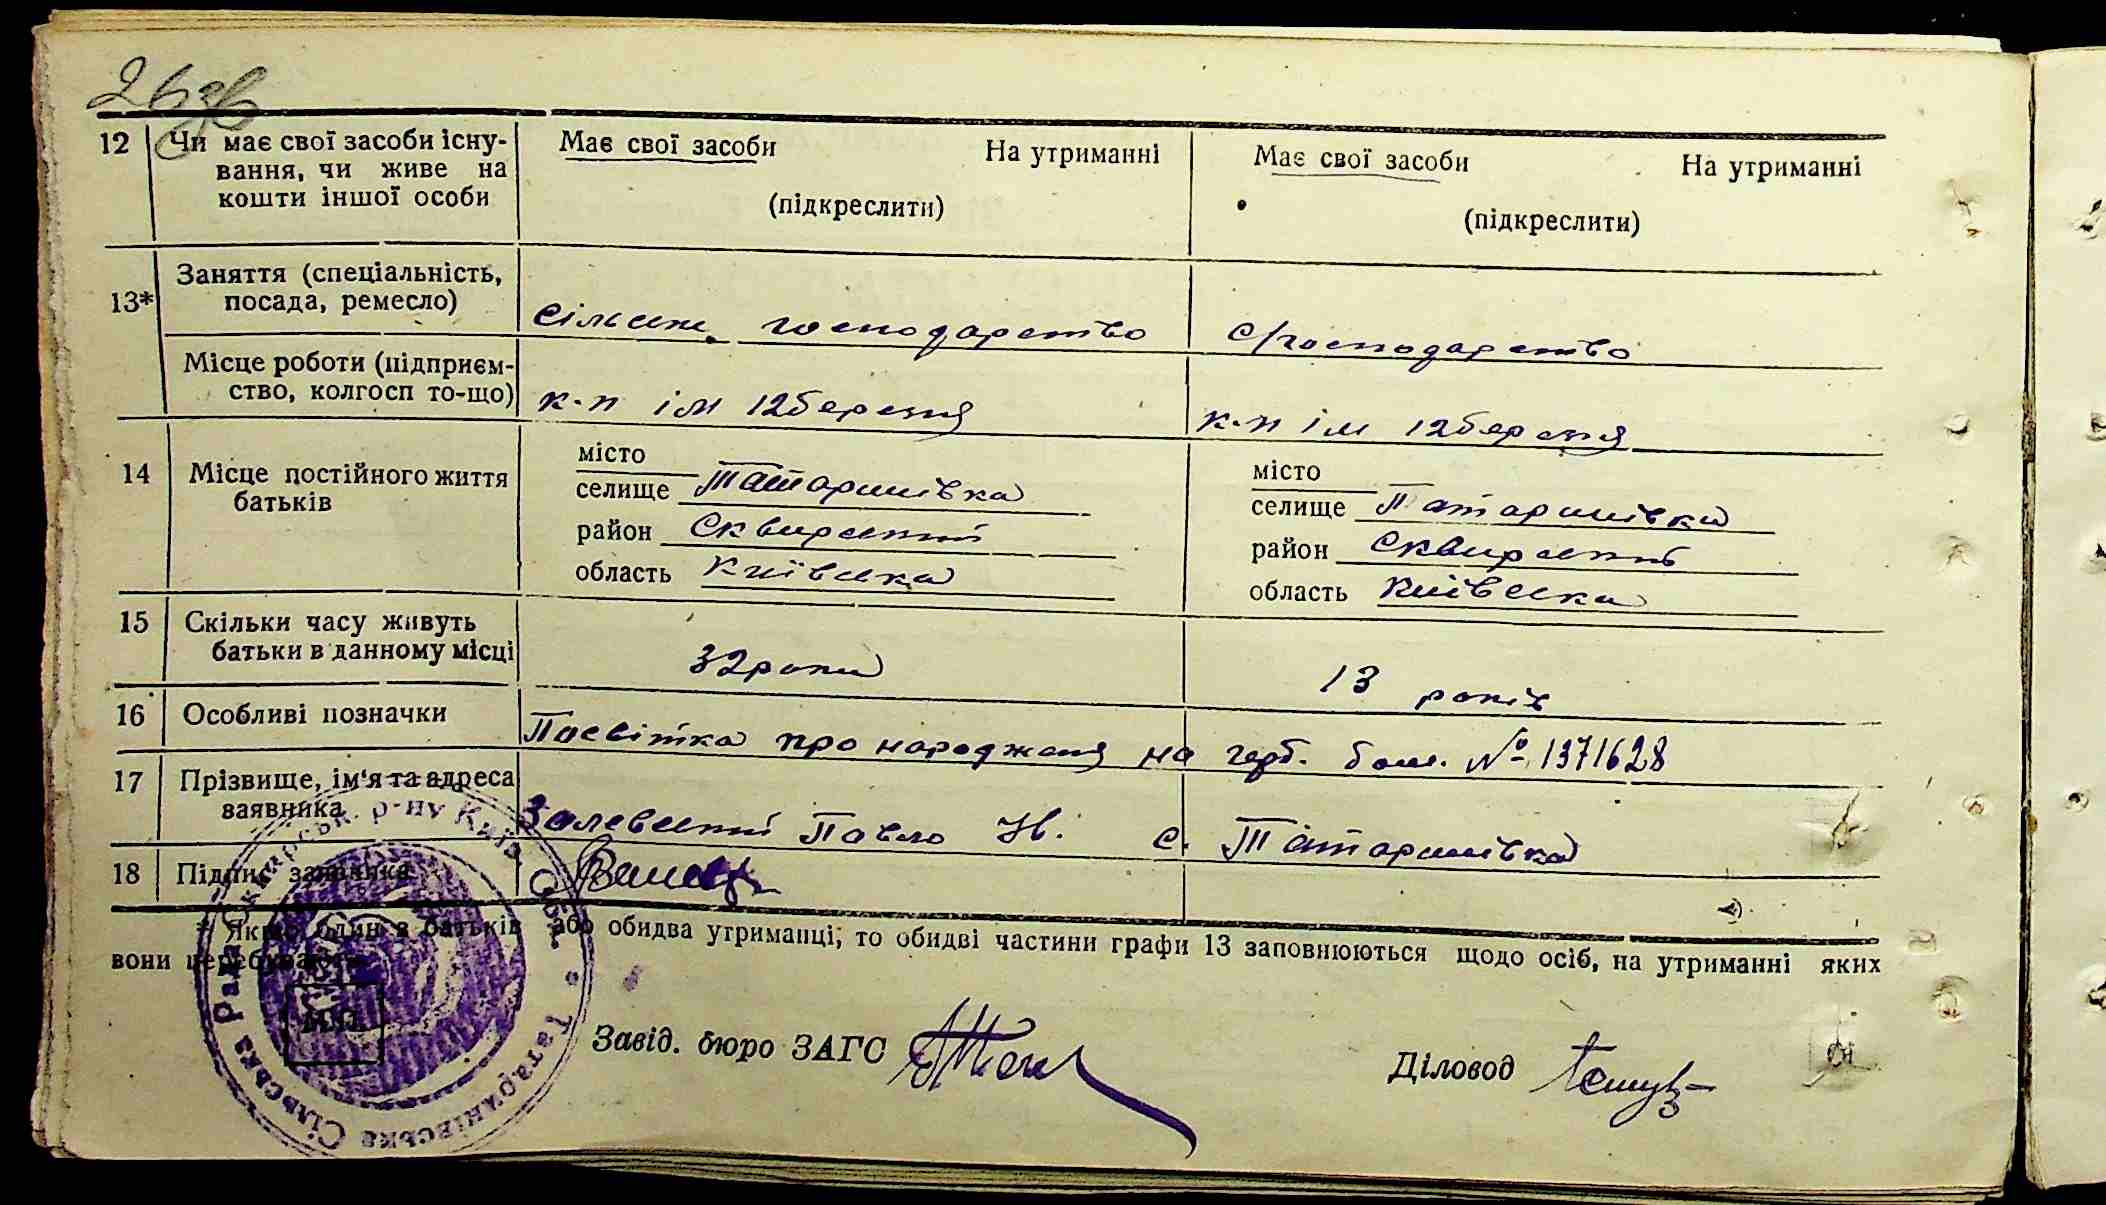 26 зв
12 Чи має свої засоби існу- Має свої засоби На утриманні Має свої засоби На утриманні
вання, чи живе на
кошти іншої особи (підкреслити) (підкреслити)
13* Заняття (спеціальність,
посада, ремесло) сільськ. господарство с/господарство
Місце роботи (підприєм-
ство, колгосп то-що) к-п ім 12 березня к-п ім 12 березня
14 Місце постійного життя місто місто
батьків селище Татаринівка селище Татаринівка
район Сквирський район Сквирський
область Київська область Київська
15 Скільки часу живуть
батьки в данному місці 32 роки 13 років
16 Особливі позначки Посвітка про народженя на герб. бом. № 1371628
17 Прізвище, ім'я та адреса
заявника Залевський Павло Ів. с. Татаринівка
18 Підпис заявника
* Якщо один з батьків або обидва утриманці, то обидві частини графи 13 заповнюються щодо осіб, на утриманні яких
вони перебувають.
М.П.
Завід. бюро ЗАГС Діловод
Татаринівська Сільська Рада Сквирськ. р-ну Київ. Обл.